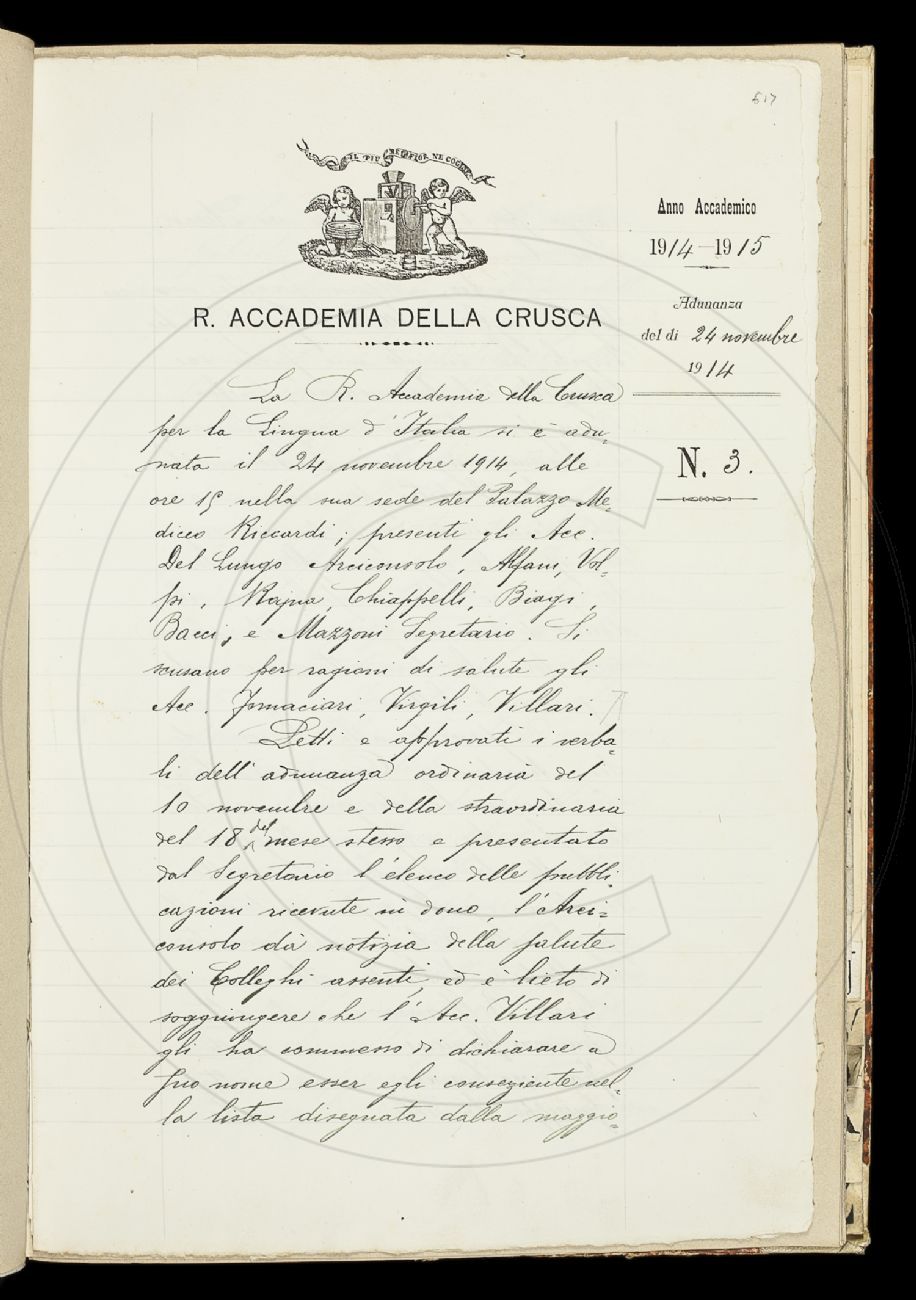 517
IL PIÙ BEL FIOR NE COGLIE
Anno Accademico
1914-1915
Adunanza
del dì 24 novembre
1914
N. 3.
R. ACCADEMIA DELLA CRUSCA
La R. Accademia della Crusca
per la Lingua d'Italia si è adu=
nata il 24 novembre 1914, alle
ore 15 nella sua sede del Palazzo Me=
diceo Riccardi; presenti gli Acc.
Del Lungo Arciconsolo, Alfani, Vol=
pi, Rajna, Chiappelli, Biagi,
Bacci, e Mazzoni Segretario. Si
scusano per ragioni di salute gli
Acc. Fornaciari, Virgili, Villari.
Letti e approvati i verba=
li dell'adunanza ordinaria del
10 novembre e della straordinaria
del 18 del mese stesso e presentato
dal Segretario l'elenco delle pubbli=
cazioni ricevute in dono, l'Arci=
consolo dà notizia della salute
dei Colleghi assenti, ed è lieto di
soggiungere che l'Acc. Villari
gli ha commesso di dichiarare a
suo nome esser egli conseziente nel=
la lista disegnata dalla maggio=